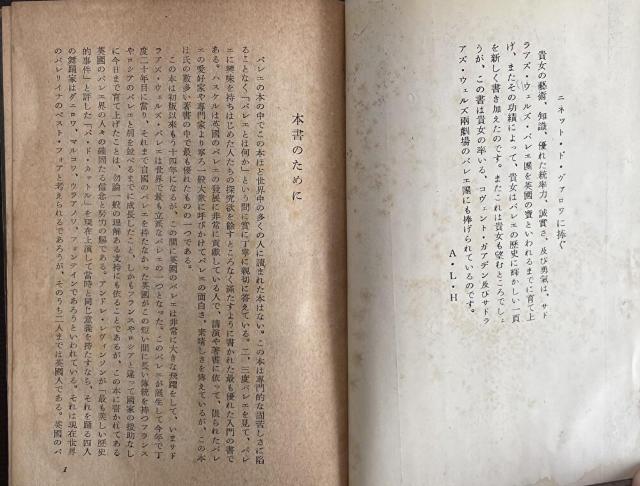 ニネット・ド・ヴァロワに捧ぐ
貴女の藝術、知識、優れた統率力、誠實さ、及び勇氣は、サド
ラアズ・ウェルズ・バレエ團を英國の寶といわれるまでに育て上
げ、またその功績によって、貴女はバレエの歴史に輝かしい一頁
を新しく書き加えたのです。またこれは貴女も望むところでしょ
うが、この書は貴女の率いる、コヴェント・ガアデン及びサドラ
アズ・ウェルズ兩劇場のバレエ團にも捧げられているのです。
A・L・H
本書のために
バレエの本の中でこの本ほど世界中の多くの人に讀まれた本はない。この本は專門的な固苦しさに陷
ることなく「バレエとは何か」という問に實に丁寧に親切に答えている。二、三度バレエを見て、バレ
エに興味を持ちはじめた人たちの探究欲を餘すところなく滿たすように書かれた最も優れた入門の書で
ある。ハスケルは英國のバレエの發展に非常に貢獻している人で、講演や著書に依って、限られたバレ
エの愛好家や專門家より寧ろ一般大衆に呼びかけてバレエの面白さ、素晴しさを傳えているが、この本
は氏の數多い著書の中で最も優れたものの一つである。
この本は初版以來もう十四年になるが、この間に英國のバレエは非常に大きな飛躍をして、いまサド
ラアズ・ウェルズ・バレエは世界で最も立派なバレエの一つとなった。このバレエが誕生して今年で丁
度二十年目に當り、それまで自國のバレエを持たなかった英國がこの短い間に長い傳統を持つフランス
やロシアのバレエと肩を竝べるまでに成長したこと、しかもフランスやロシアと違って國家の援助なし
に今日まで育て上げたことは、勿論一般の理解ある支持にも依ることであるが、この本に書かれてある
英國のバレエ界の人々の確固たる信念と努力の賜である。アンドレ・レヴィンソンが「最も美しい歴史
的事件」と評した「パ・ド・カトル」を現在上演して當時と同じ意義を持たすなら、それを踊る四人
の舞踊家はダニロワ、マルコワ、ウラノワ、フォンテインであろうといわれている。それは現在世界
のバレリイナのベスト・フォアと考えられるであろうが、そのうち二人までは英國人である。英國のバ
1